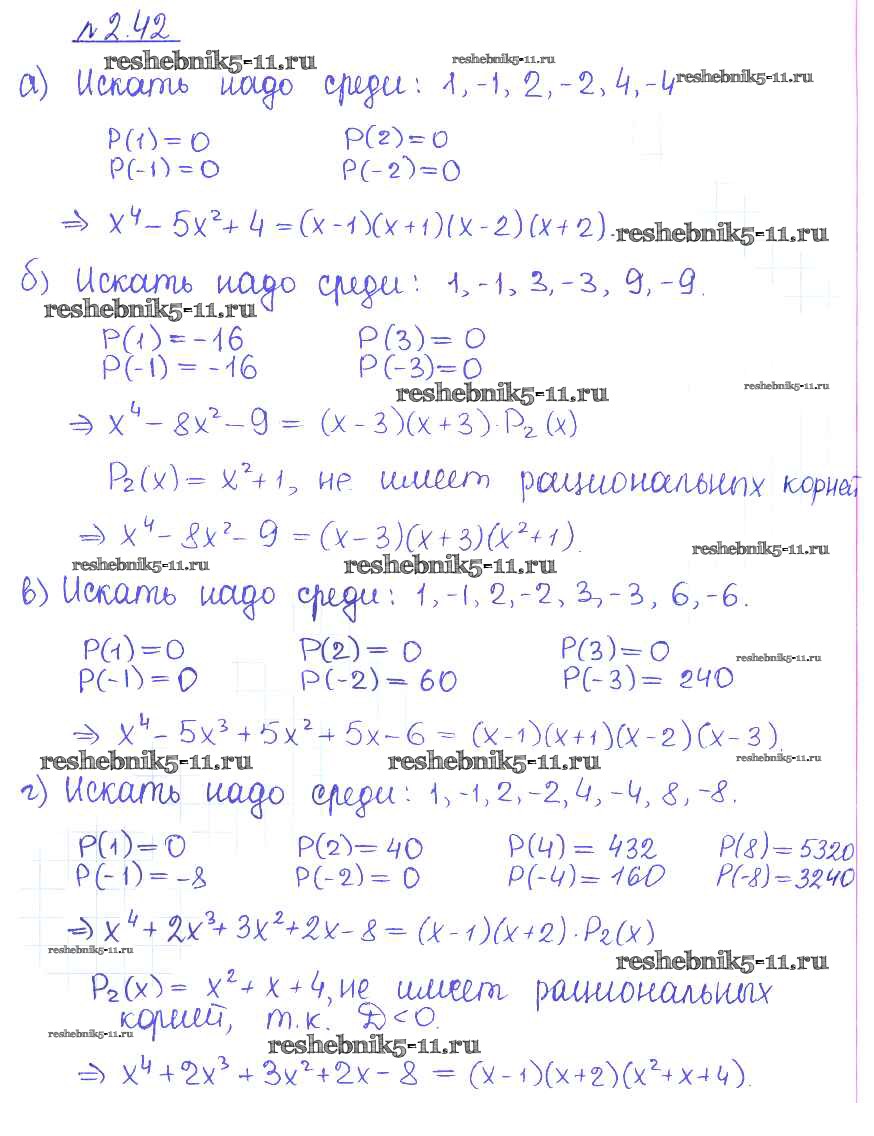 №2.42
reshebnik5-11.ru reshebnik5-11.ru
а) Искать надо среди: 1, -1, 2, -2, 4, -4 reshebnik5-11.ru
P(1)=0 P(2)=0
P(-1)=0 P(-2)=0
⇒ x⁴ - 5x² + 4 = (x-1)(x+1)(x-2)(x+2). reshebnik5-11.ru
б) Искать надо среди: 1, -1, 3, -3, 9, -9.
reshebnik5-11.ru
P(1) = -16 P(3) = 0
P(-1) = -16 P(-3)=0
reshebnik5-11.ru reshebnik5-11.ru
⇒ x⁴ - 8x² - 9 = (x-3)(x+3)·P₂(x)
P₂(x) = x²+1, не имеет рациональных корней
⇒ x⁴ - 8x² - 9 = (x-3)(x+3)(x²+1).
reshebnik5-11.ru reshebnik5-11.ru reshebnik5-11.ru
в) Искать надо среди: 1, -1, 2, -2, 3, -3, 6, -6.
P(1)=0 P(2)= 0 P(3)=0 reshebnik5-11.ru
P(-1)=0 P(-2)=60 P(-3)= 240
⇒ x⁴ - 5x³ + 5x² + 5x - 6 = (x-1)(x+1)(x-2)(x-3).
reshebnik5-11.ru reshebnik5-11.ru reshebnik5-11.ru
г) Искать надо среди: 1, -1, 2, -2, 4, -4, 8, -8.
P(1)=0 P(2)=40 P(4) = 432 P(8)=5320
P(-1)=-8 P(-2)=0 P(-4)=160 P(-8)=3240
⇒ x⁴ + 2x³ + 3x² + 2x - 8 = (x-1)(x+2)·P₂(x)
reshebnik5-11.ru reshebnik5-11.ru
P₂(x) = x² + x + 4, не имеет рациональных
корней, т.к. D<0.
reshebnik5-11.ru reshebnik5-11.ru
⇒ x⁴ + 2x³ + 3x² + 2x - 8 = (x-1)(x+2)(x²+x+4).